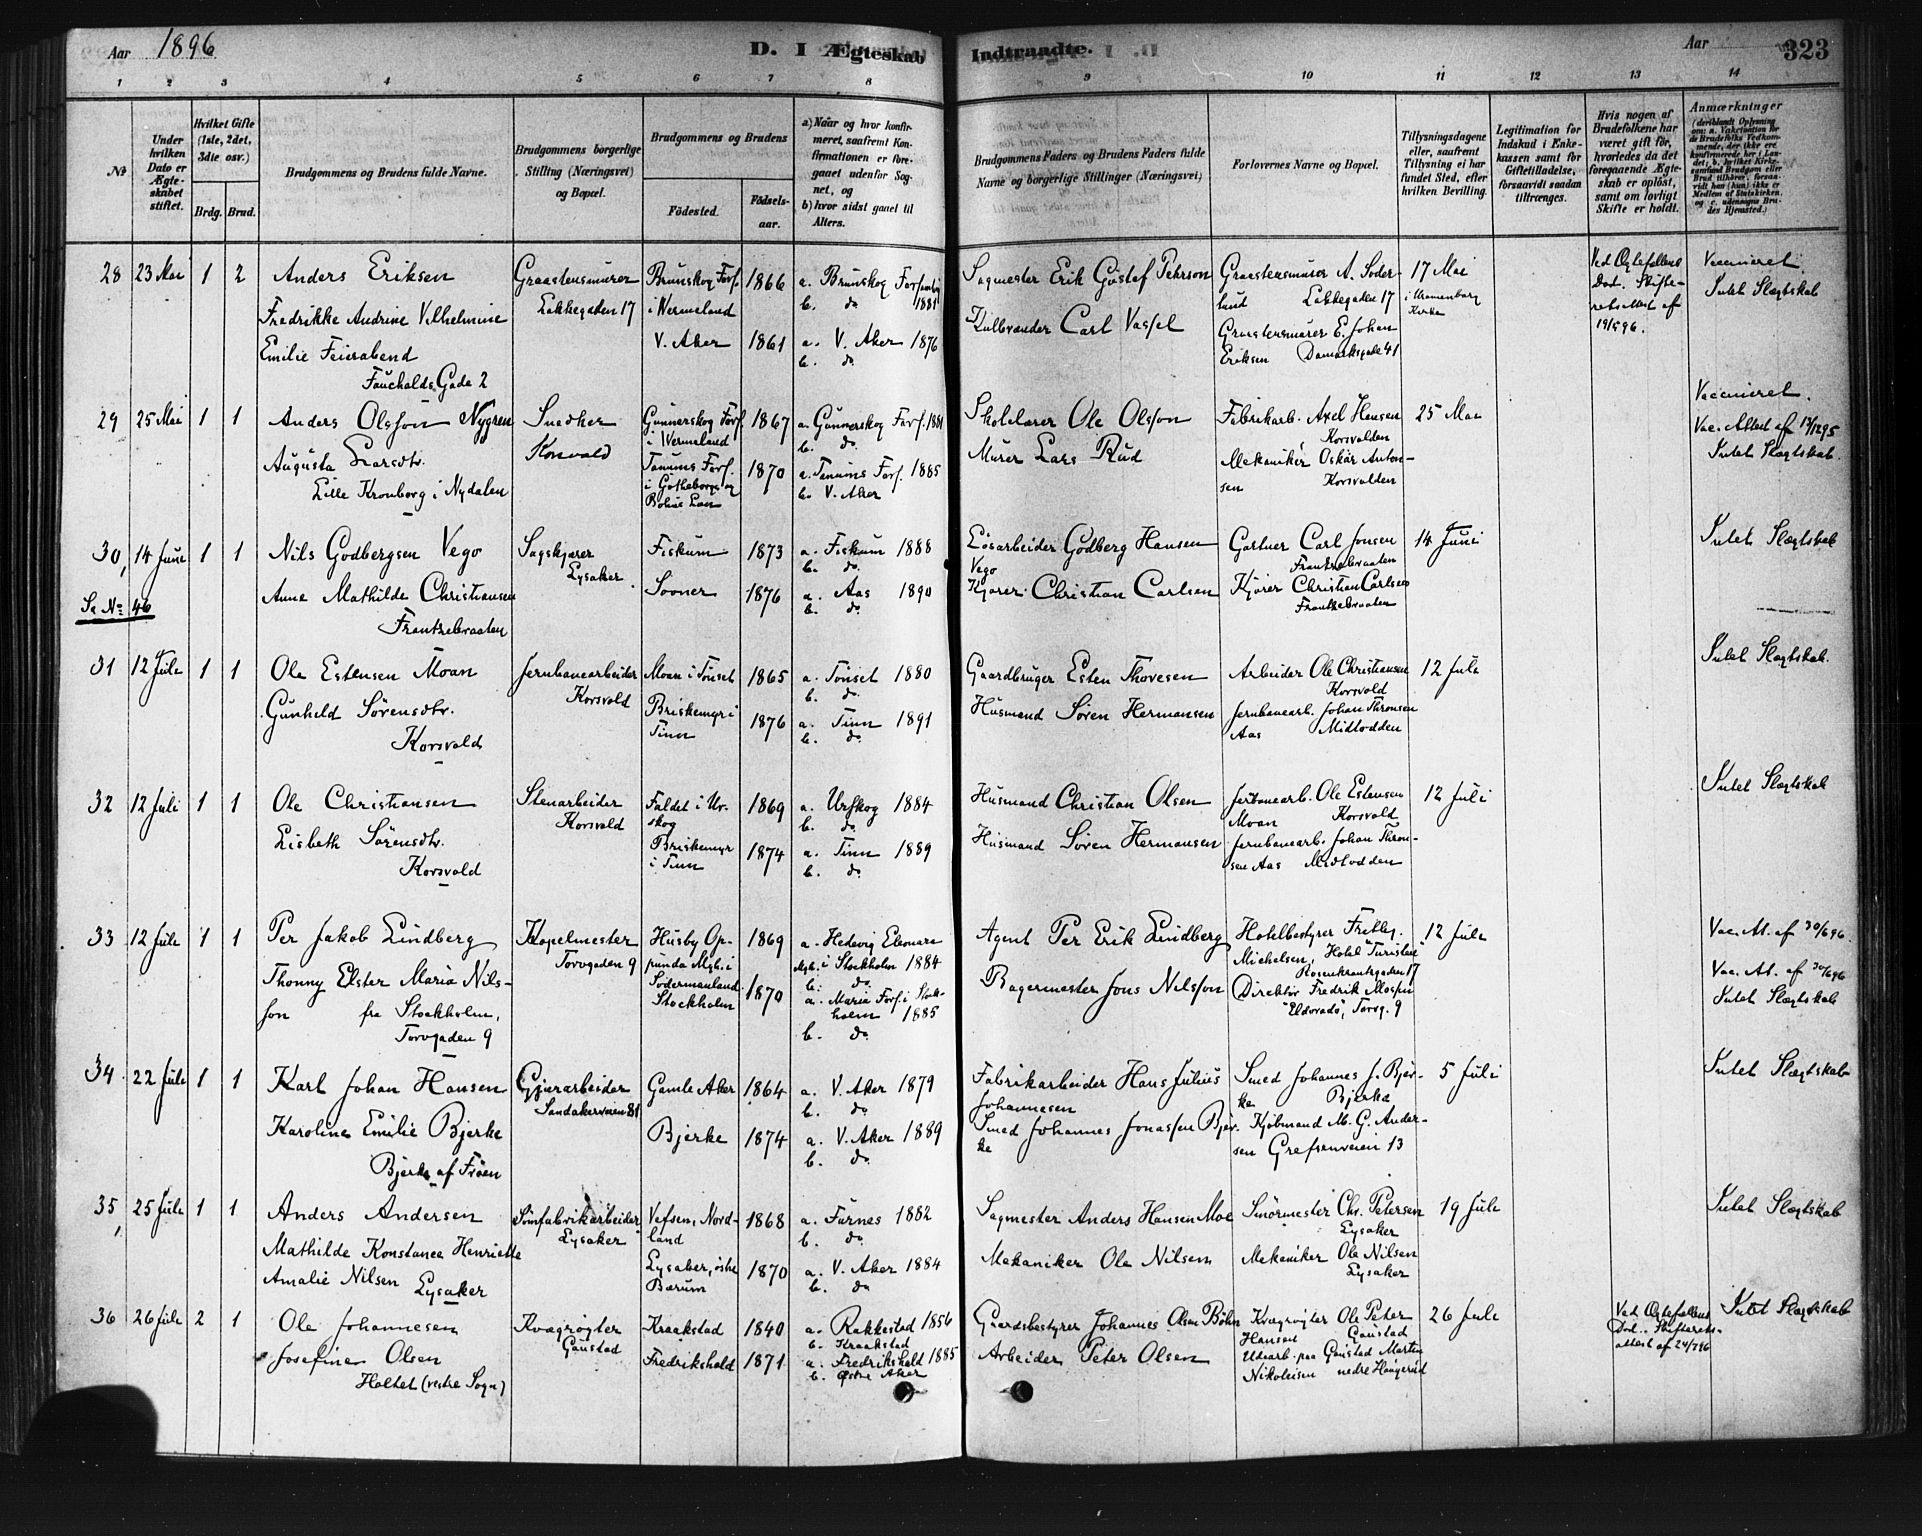 Aar 1896
D. I Ægteskab
Indtraadte.
Aar
323
1 2 3 4 5 6 7 8 9 10 11 12 13 14
No
Under hvilken Dato er Ægteskabet stiftet.
Hvilket Gifte (1ste, 2det, 3die osv.)
Brdg. Brud.
Brudgommens og Brudens fulde Navne.
Brudgommens borgerlige Stilling (Næringsvei) og Bopæl.
Brudgommens og Brudens
Födested.
Födselsaar.
a) Naar og hvor konfirmeret, saafremt Konfirmationen er foregaaet udenfor Sognet, og
b) hvor sidst gaaet til Alters.
Brudgommens Faders og Brudens Faders fulde Navne og borgerlige Stillinger (Næringsvei)
Forlovernes Navne og Bopæl.
Tillysningsdagene eller, saafremt Tillysning ei har fundet Sted, efter hvilken Bevilling.
Legitimation for Indskud i Enkekassen samt for Giftetilladelse, forsaavidt saadan tiltrænges.
Hvis nogen af Brudefolkene har været gift før, hvorledes da det foregaaende Ægteskab er oplöst, samt om lovligt Skifte er holdt.
Anmærkninger
28 23 Mai 1 2 Anders Eriksen
Fredrikke Andrine Vilhelmine
Emilie Feierabend
Fauchalds Gade 2
Graastensmurer
Lakkegaden 17
Brunskog Fors.
i Vermeland
V. Aker
1866
1861
a. Brunskog Forsamling 1881
b. do
a. V. Aker 1876
b. do
Sagmester Erik Gustaf Pehrson
Carl Vassel
Graastensmurer A. Soderlund Lakkegaden 17
Graastensmurer E. Johan
Eriksen Damarksgade 41
17 Mai
i Uranienborg
Kirke
Ved Ægtefællens
Død. Skifteretsattest af
19/5 96.
Vaccineret.
Intet Slægtskab
29 25 Mai 1 1 Anders Olsson Nygren
Augusta Larsdtr.
Lille Kronborg i Nydalen
Snedker
Korsvold
Gunnerskog Fors.
i Vermeland
Tanums Fors.
i Gotheborgs og
Bohus Lan
1867
1870
a. Gunnerskog Fors. 1881
b. do
a. Tanums Fors. 1885
b. V. Aker
Skolelærer Ole Olsson
Murer Lars Rud
Fabrikarb. Axel Hansen
Korsvolden
Mekaniker Oskar Antonsen Korsvolden
25 Mai
Vaccineret.
Vac. Attest af 17/12 95
Intet Slægtskab.
30, 14 Juni 1 1 Nils Godbergsen Vego
Anne Mathilde Christiansen
Frantzebraaten
Se No 46
Sagskjærer
Lysaker
Fiskum
Sooner
1873
1876
a. Fiskum 1888
b. do
a. Aas 1890
b. do
Løsarbeider Godberg Hansen
Vego
Kjører Christian Carlsen
Gartner Carl Jonsen
Frantzebraaten
Kjører Christian Carlsen
Frantzebraaten
14 Juni
Intet Slægtskab
31 12 Juli 1 1 Ole Estensen Moan
Gunhild Sørensdtr.
Korsvold
Jernbanearbeider
Korsvold
Moan i Tönset
Briskemyr i
Tinn
1865
1876
a. Tönset 1880
b. do
a. Tinn 1891
b. do
Gaardbruger Esten Thoresen
Husmand Sören Hermansen
Arbeider Ole Christiansen
Korsvold
Jernbanearb. Johan Thronsen
Aas Midtodden
12 Juli
Intet Slægtskab.
32 12 Juli 1 1 Ole Christiansen
Lisbeth Sörensdtr.
Korsvold
Stenarbeider
Korsvold
Faldet i Urskog
Briskemyr
i Tinn
1869
1874
a. Urskog 1884
b. do
a. Tinn 1889
b. do
Husmand Christian Olsen
Husmand Sören Hermansen
Jerbanearb. Ole Estensen
Moan Korsvold
Jernbanearb. Johan Thronsen Aas Midtodden
12 Juli
Intet Slægtskab
33 12 Juli 1 1 Per Jakob Lindberg
Thonny Elster Maria Nilsson fra Stockholm,
Torvgaden 9
Kapelmester
Torvgaden 9
Husby Oppunda Mgh. i
Södermanland
Stockholm
1869
1870
a. Hedevig Eleonara
Mgh. i Stockholm 1884
b. do
a. Maria Fors. i Stockholm 1885
b. do
Agent Per Erik Lindberg
Bagermester Jons Nilsson
Hotelbestyrer
Michelsen, Hotel "Turisten"
Rosenkrantzgaden 17
Direktör Fredrik
"Eldorado", Torvg. 9
12 Juli
Vac. At. af 30/6 96.
Vac. At. af 30/6 96
Intet Slægtskab
34 22 Juli 1 1 Karl Johan Hansen
Karoline Emilie Bjerke
Bjerke af Fröen
Gjærarbeider
Sandakerveien 81
Gamle Aker
Bjerke
1864
1874
a. V. Aker 1879
b. do
a. V. Aker 1889
b. do
Fabrikarbeider Hans Julius
Johannesen
Smed Johannes Jonassen Bjerke
Smed Johannes J. Bjerke Bjerke
Kjöbmand M. G. Andersen Grefsenveien 13
5 Juli
Intet Slægtskab
35, 25 Juli 1 1 Anders Andersen
Mathilde Konstanea Henriette
Amalie Nilsen Lysaker
Sömfabrikarbeider
Lysaker
Vefsen, Nordland
Lysaker, östre
Bærum
1868
1870
a. Furnes 1882
b. do
a. V. Aker 1884
b. do
Sagmester Anders Hansen Moe
Mekaniker Ole Nilsen
Smörmester Chr. Petersen
Lysaker
Mekaniker Ole Nilsen
Lysaker
19 Juli
Intet Slægtskab
36 26 Juli 2 1 Ole Johannesen
Josefine Olsen
Holtet (vestre Sogn)
Kvægrögter
Gaustad
Kraakstad
Fredrikshald
1840
1871
a. Rakkestad 1856
b. Kraakstad
a. Fredrikshald 1885
b. Östre Aker
Gaardsbestyrer Johannes Olsen Böhn
Arbeider Peter Olsen
Kvægrögter Ole Peter
Hansen Gaustad
Udearb. paa Gaustad Martin
Nikolaisen nedre Haugerud
26 Juli
Ved Ægtefællens
Död. Skifteretsattest af 24/7 96
Intet Slægtskab